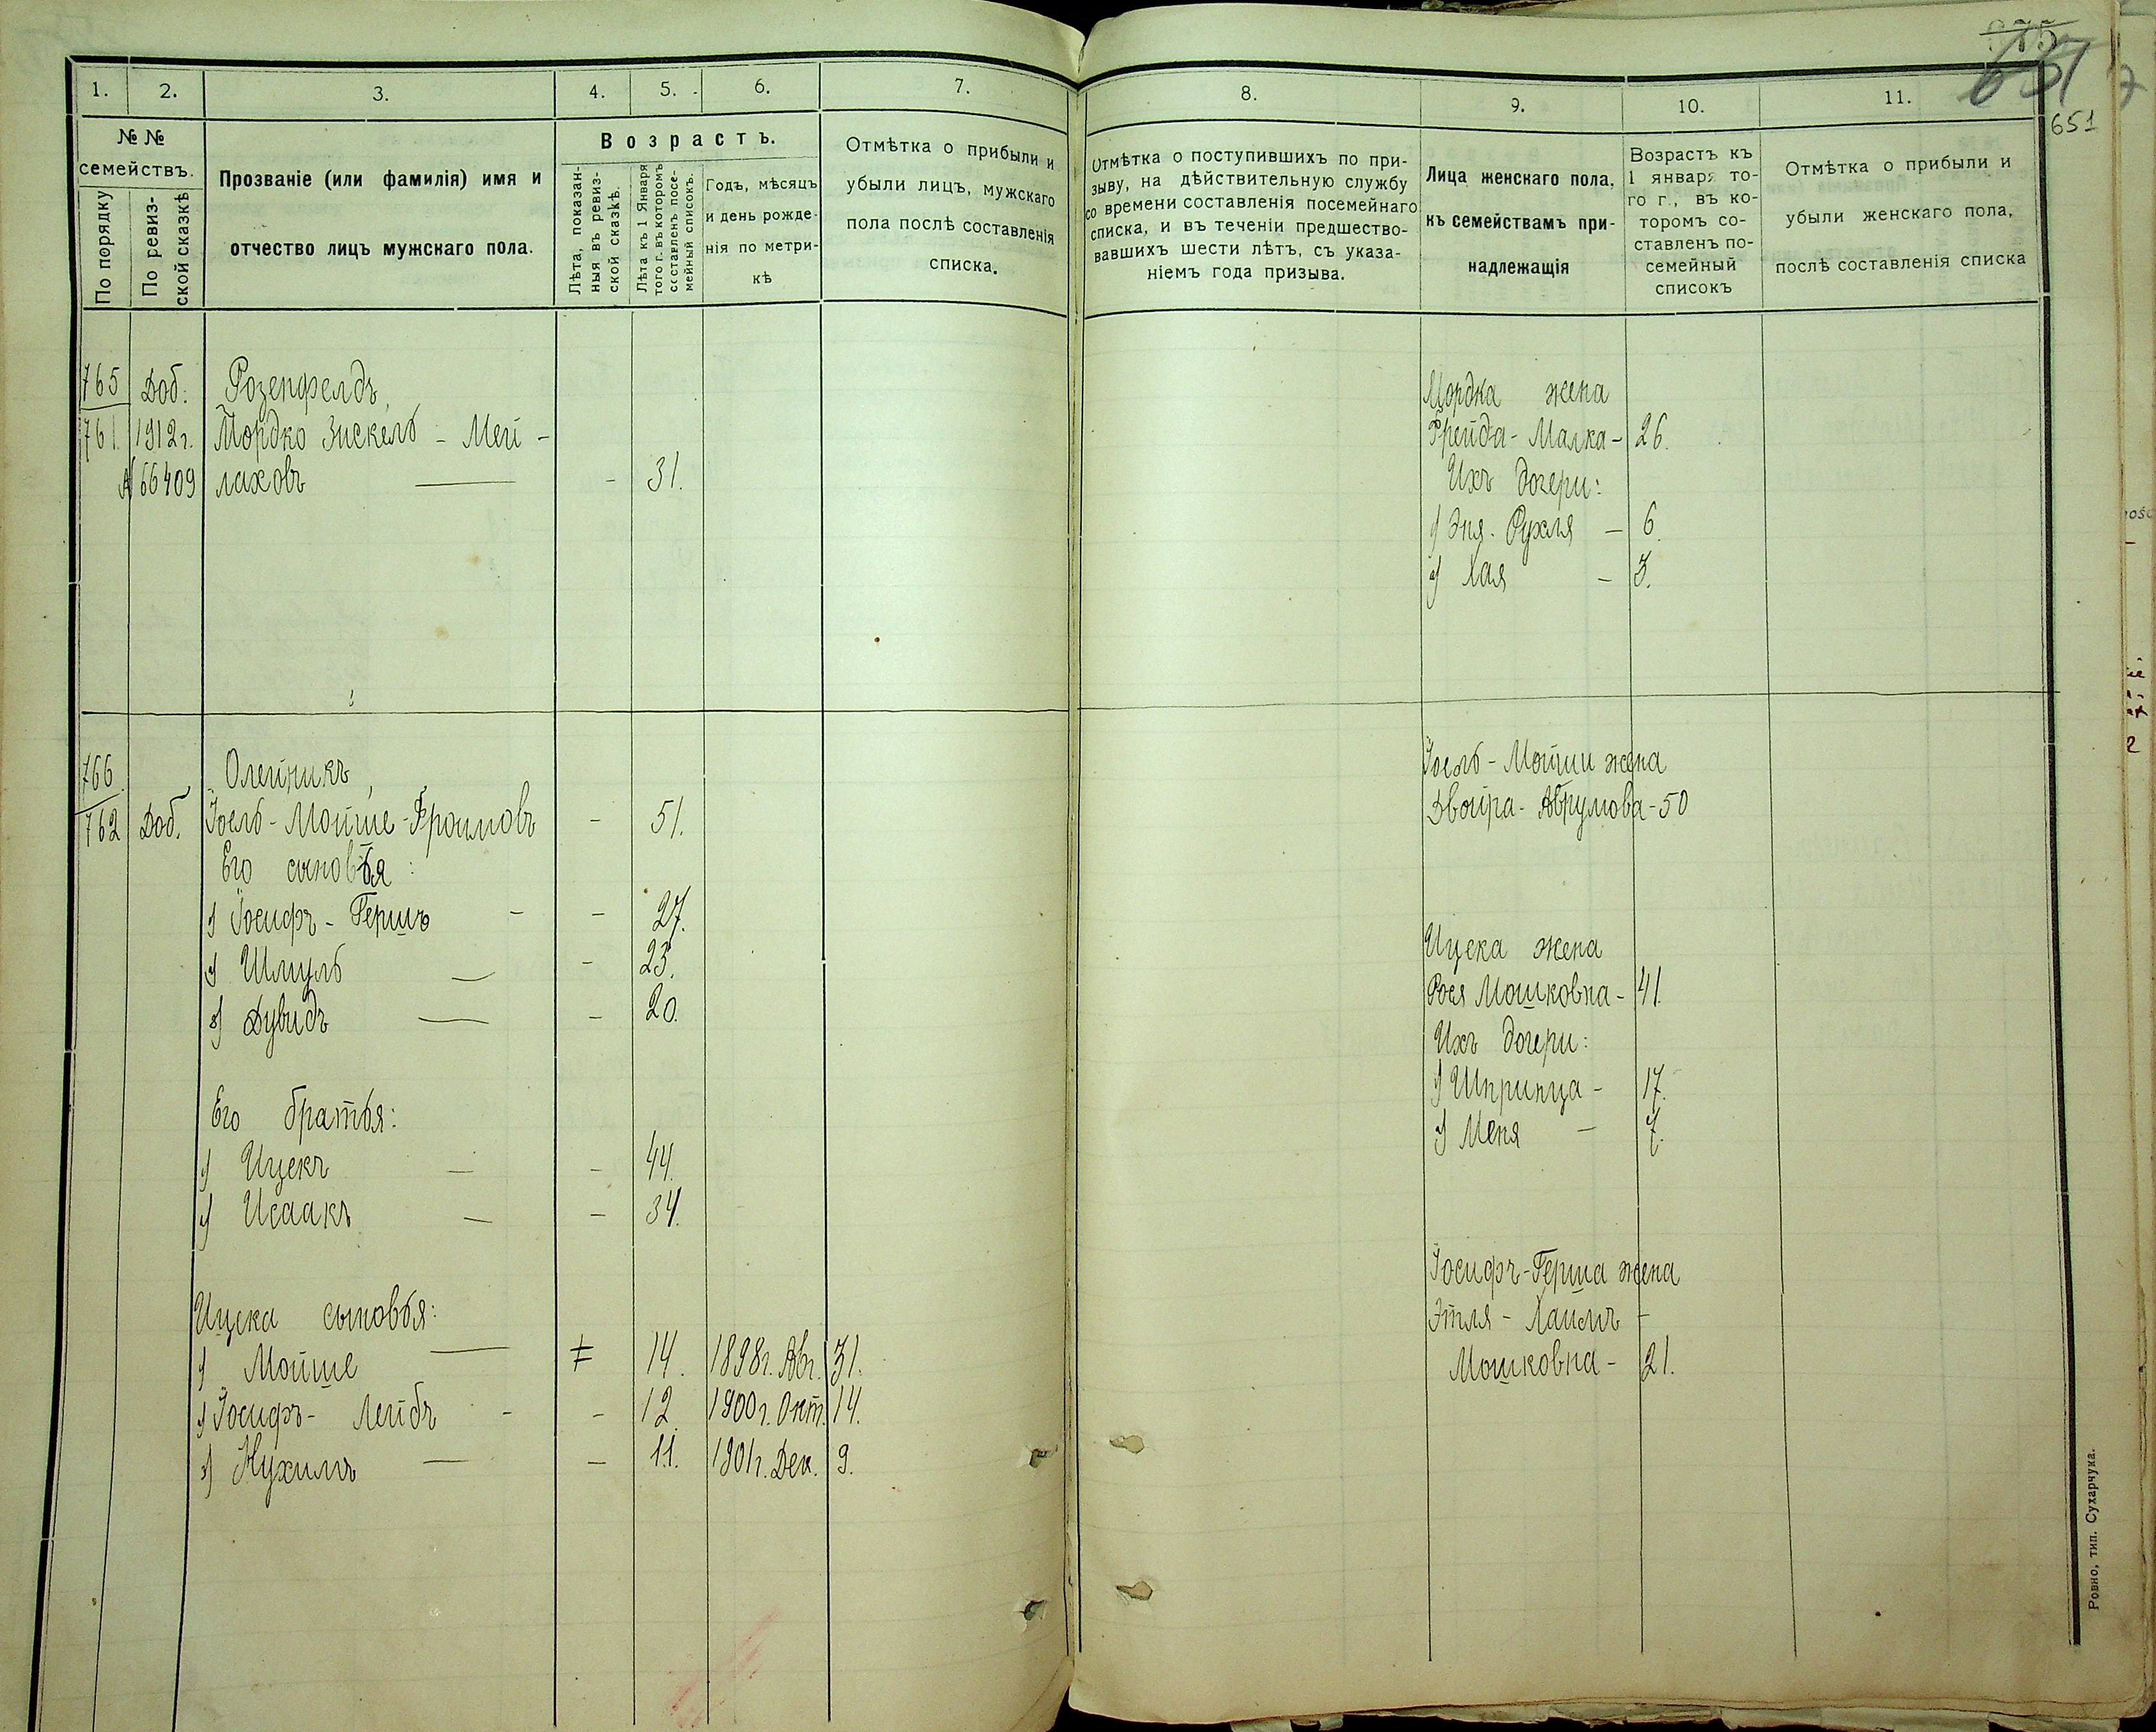 651
1.
2.
3.
4.
5.
6.
7.
№ №
семействъ.
По порядку
По ревиз-
ской сказкѣ
Прозваніе (или фамилія) имя и
отчество лицъ мужскаго пола.
Возрастъ.
Лѣта, показан-
ныя въ ревиз-
ской сказкѣ.
Лѣта къ 1 Января
того г. въ которомъ
составленъ посе-
мейный списокъ.
Годъ, мѣсяцъ
и день рожде-
нія по метри-
кѣ
Отмѣтка о прибыли и
убыли лицъ, мужскаго
пола послѣ составленія
списка.
765
761.
Доб.
1912 г.
№ 66409
Розенфелдъ
Мордко Зискель - Мей-
лаховъ — - 31.
766
762
Доб.
Олейникъ
Іоель-Мойше-Фроимовъ - 51.
Его сыновья:
1) Іосифъ-Гершъ - - 27.
2) Шмуль — - 23.
3) Дувидъ — - 20.
Его братья:
1) Ицекъ — - 44.
2) Исаакъ — - 34.
Ицека сыновья:
1) Мойше — 14. 1898 г. Авг. 31.
2) Іосифъ-Лейбъ - - 12. 1900 г. Окт. 14.
3) Нухимъ — - 11. 1901 г. Дек. 9.
8.
9.
10.
11.
Отмѣтка о поступившихъ по при-
зыву, на дѣйствительную службу
со времени составленія посемейнаго
списка, и въ теченіи предшество-
вавшихъ шести лѣтъ, съ указа-
ніемъ года призыва.
Лица женскаго пола,
къ семействамъ при-
надлежащія
Возрастъ къ
1 января то-
го г., въ ко-
торомъ со-
ставленъ по-
семейный
списокъ
Отмѣтка о прибыли и
убыли женскаго пола,
послѣ составленія списка
Мордка жена
Фрейда-Малка - 26.
Ихъ дочери:
1) Эня-Рухля - 6.
2) Хая - 3.
Іоель-Мойши жена
Двойра-Аврумова - 50
Ицека жена
Рося Мошковна - 41.
Ихъ дочери:
1) Шпринца - 17.
2) Меня - 7.
Іосифъ-Герша жена
Этля-Хаимъ-
Мошковна - 21.
Ровно, тип. Сухарчука.